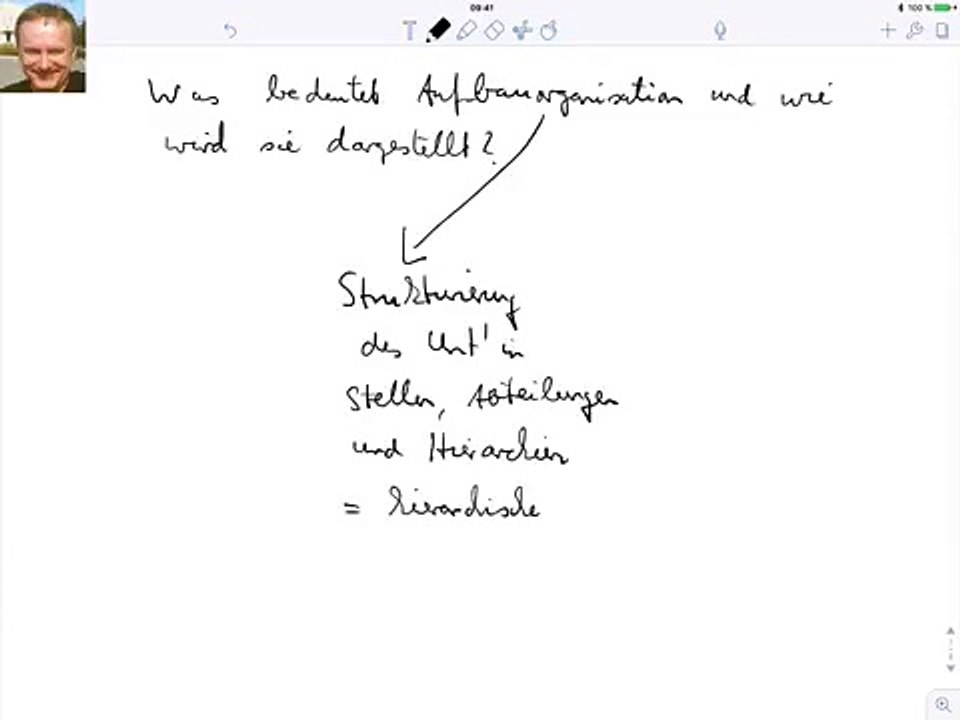 09:41
100 %
T
Was bedeutet Aufbauorganisation und wie
wird sie dargestellt?
Strukturierung
des Unt' in
Stellen, Abteilungen
und Hierarchien
= hierarchische